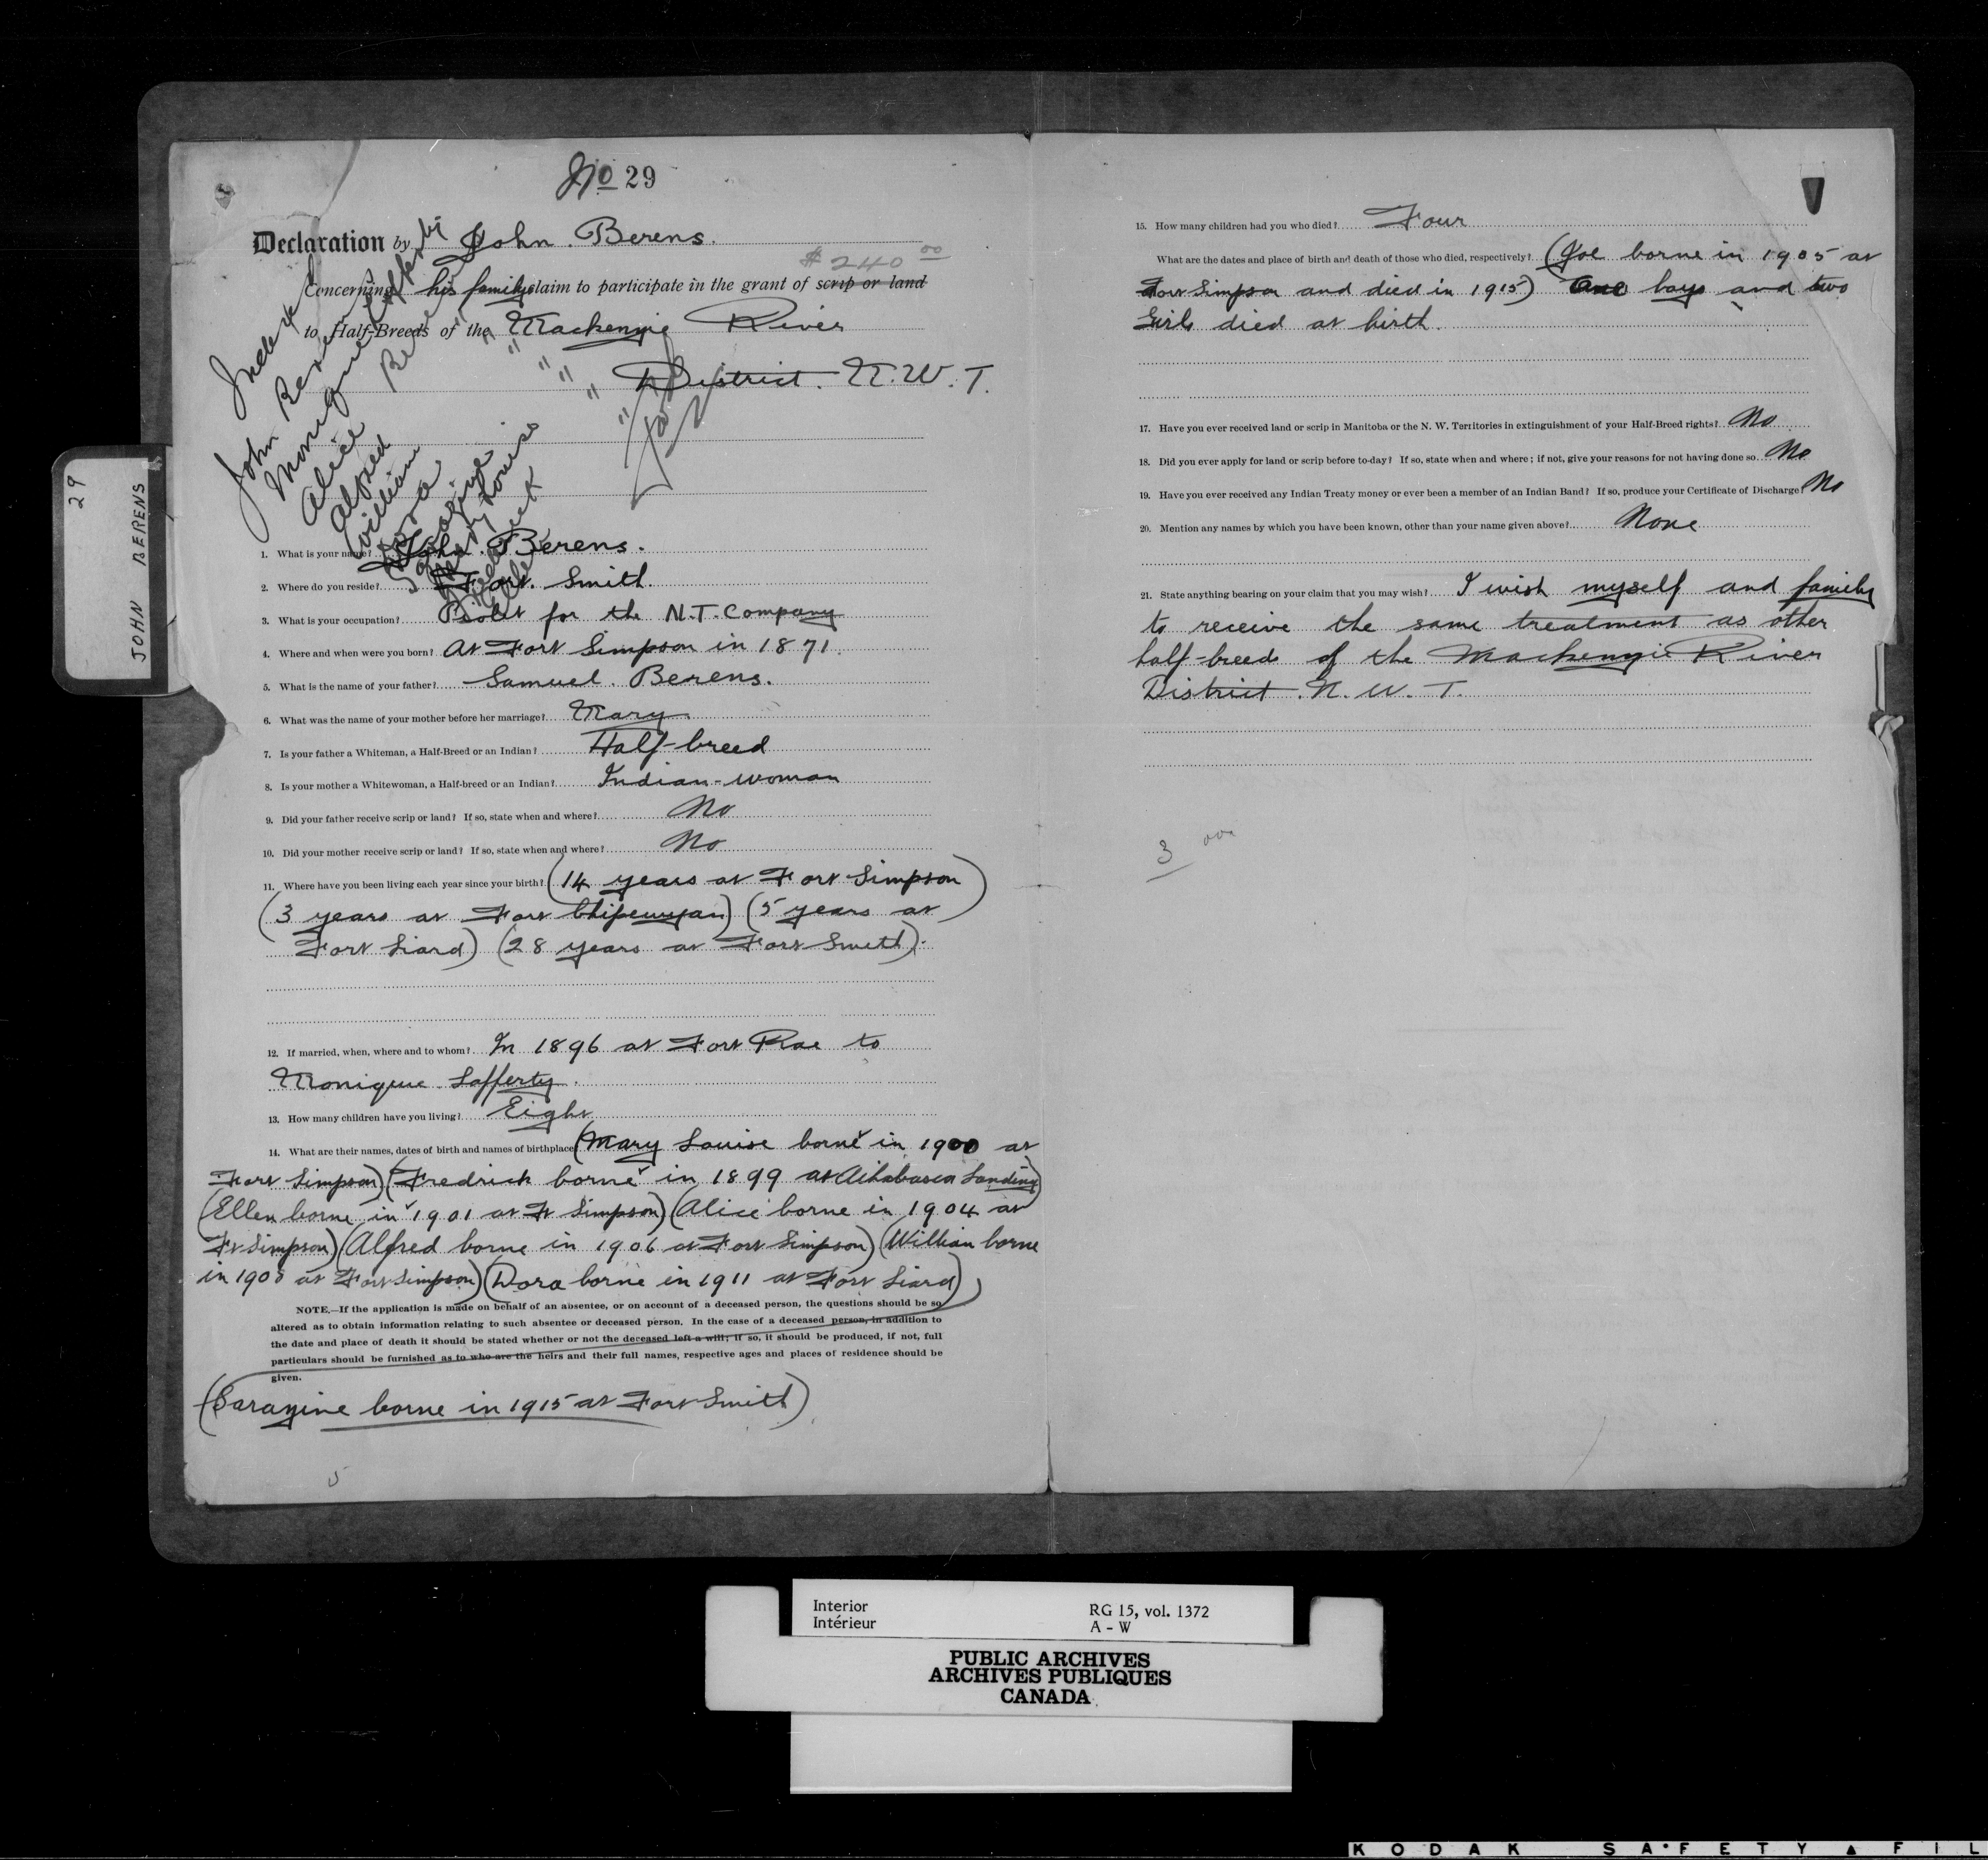 No 29
Declaration by John Berens.
$240 00
Concerning his family claim to participate in the grant of scrip or land
to Half-Breeds of the Mackenzie River
District. N.W.T.
Indexed
John Berens
Monique Lafferty
Alice Berens
Alfred "
William "
Dora "
Sarazine "
Mary Louise "
Fredrick "
Ellen "
29
JOHN BERENS
1. What is your name? John Berens.
2. Where do you reside? Fort Smith.
3. What is your occupation? Pilot for the N.T. Company
4. Where and when were you born? At Fort Simpson in 1871.
5. What is the name of your father? Samuel Berens.
6. What was the name of your mother before her marriage? Mary
7. Is your father a Whiteman, a Half-Breed or an Indian? Half-breed
8. Is your mother a Whitewoman, a Half-breed or an Indian? Indian-woman
9. Did your father receive scrip or land? If so, state when and where? No
10. Did your mother receive scrip or land? If so, state when and where? No
11. Where have you been living each year since your birth? (14 years at Fort Simpson)
(3 years at Fort Chipewyan) (5 years at
Fort Liard) (28 years at Fort Smith).
12. If married, when, where and to whom? In 1896 at Fort Rae to
Monique Lafferty.
13. How many children have you living? Eight
14. What are their names, dates of birth and names of birthplace (Mary Louise borne in 1900 at
Fort Simpson) (Fredrick borne in 1899 at Athabasca Landing)
(Ellen borne in 1901 at Ft Simpson) (Alice borne in 1904 at
Ft Simpson) (Alfred borne in 1906 at Fort Simpson) (William borne
in 1908 at Fort Simpson) (Dora borne in 1911 at Fort Liard)
NOTE.—If the application is made on behalf of an absentee, or on account of a deceased person, the questions should be so
altered as to obtain information relating to such absentee or deceased person. In the case of a deceased person, in addition to
the date and place of death it should be stated whether or not the deceased left a will; if so, it should be produced, if not, full
particulars should be furnished as to who are the heirs and their full names, respective ages and places of residence should be
given.
(Sarazine borne in 1915 at Fort Smith)
5
15. How many children had you who died? Four
What are the dates and place of birth and death of those who died, respectively? (Joe borne in 1905 at
Fort Simpson and died in 1915) One boys and two
Girls died at birth.
17. Have you ever received land or scrip in Manitoba or the N. W. Territories in extinguishment of your Half-Breed rights? No
18. Did you ever apply for land or scrip before to-day? If so, state when and where; if not, give your reasons for not having done so. No
19. Have you ever received any Indian Treaty money or ever been a member of an Indian Band? If so, produce your Certificate of Discharge? No
20. Mention any names by which you have been known, other than your name given above? None
21. State anything bearing on your claim that you may wish? I wish myself and family
to receive the same treatment as other
half-breeds of the Mackenzie River
District. N.W.T.
3
Interior
Intérieur
RG 15, vol. 1372
A - W
PUBLIC ARCHIVES
ARCHIVES PUBLIQUES
CANADA
KODAK SAFETY FIL